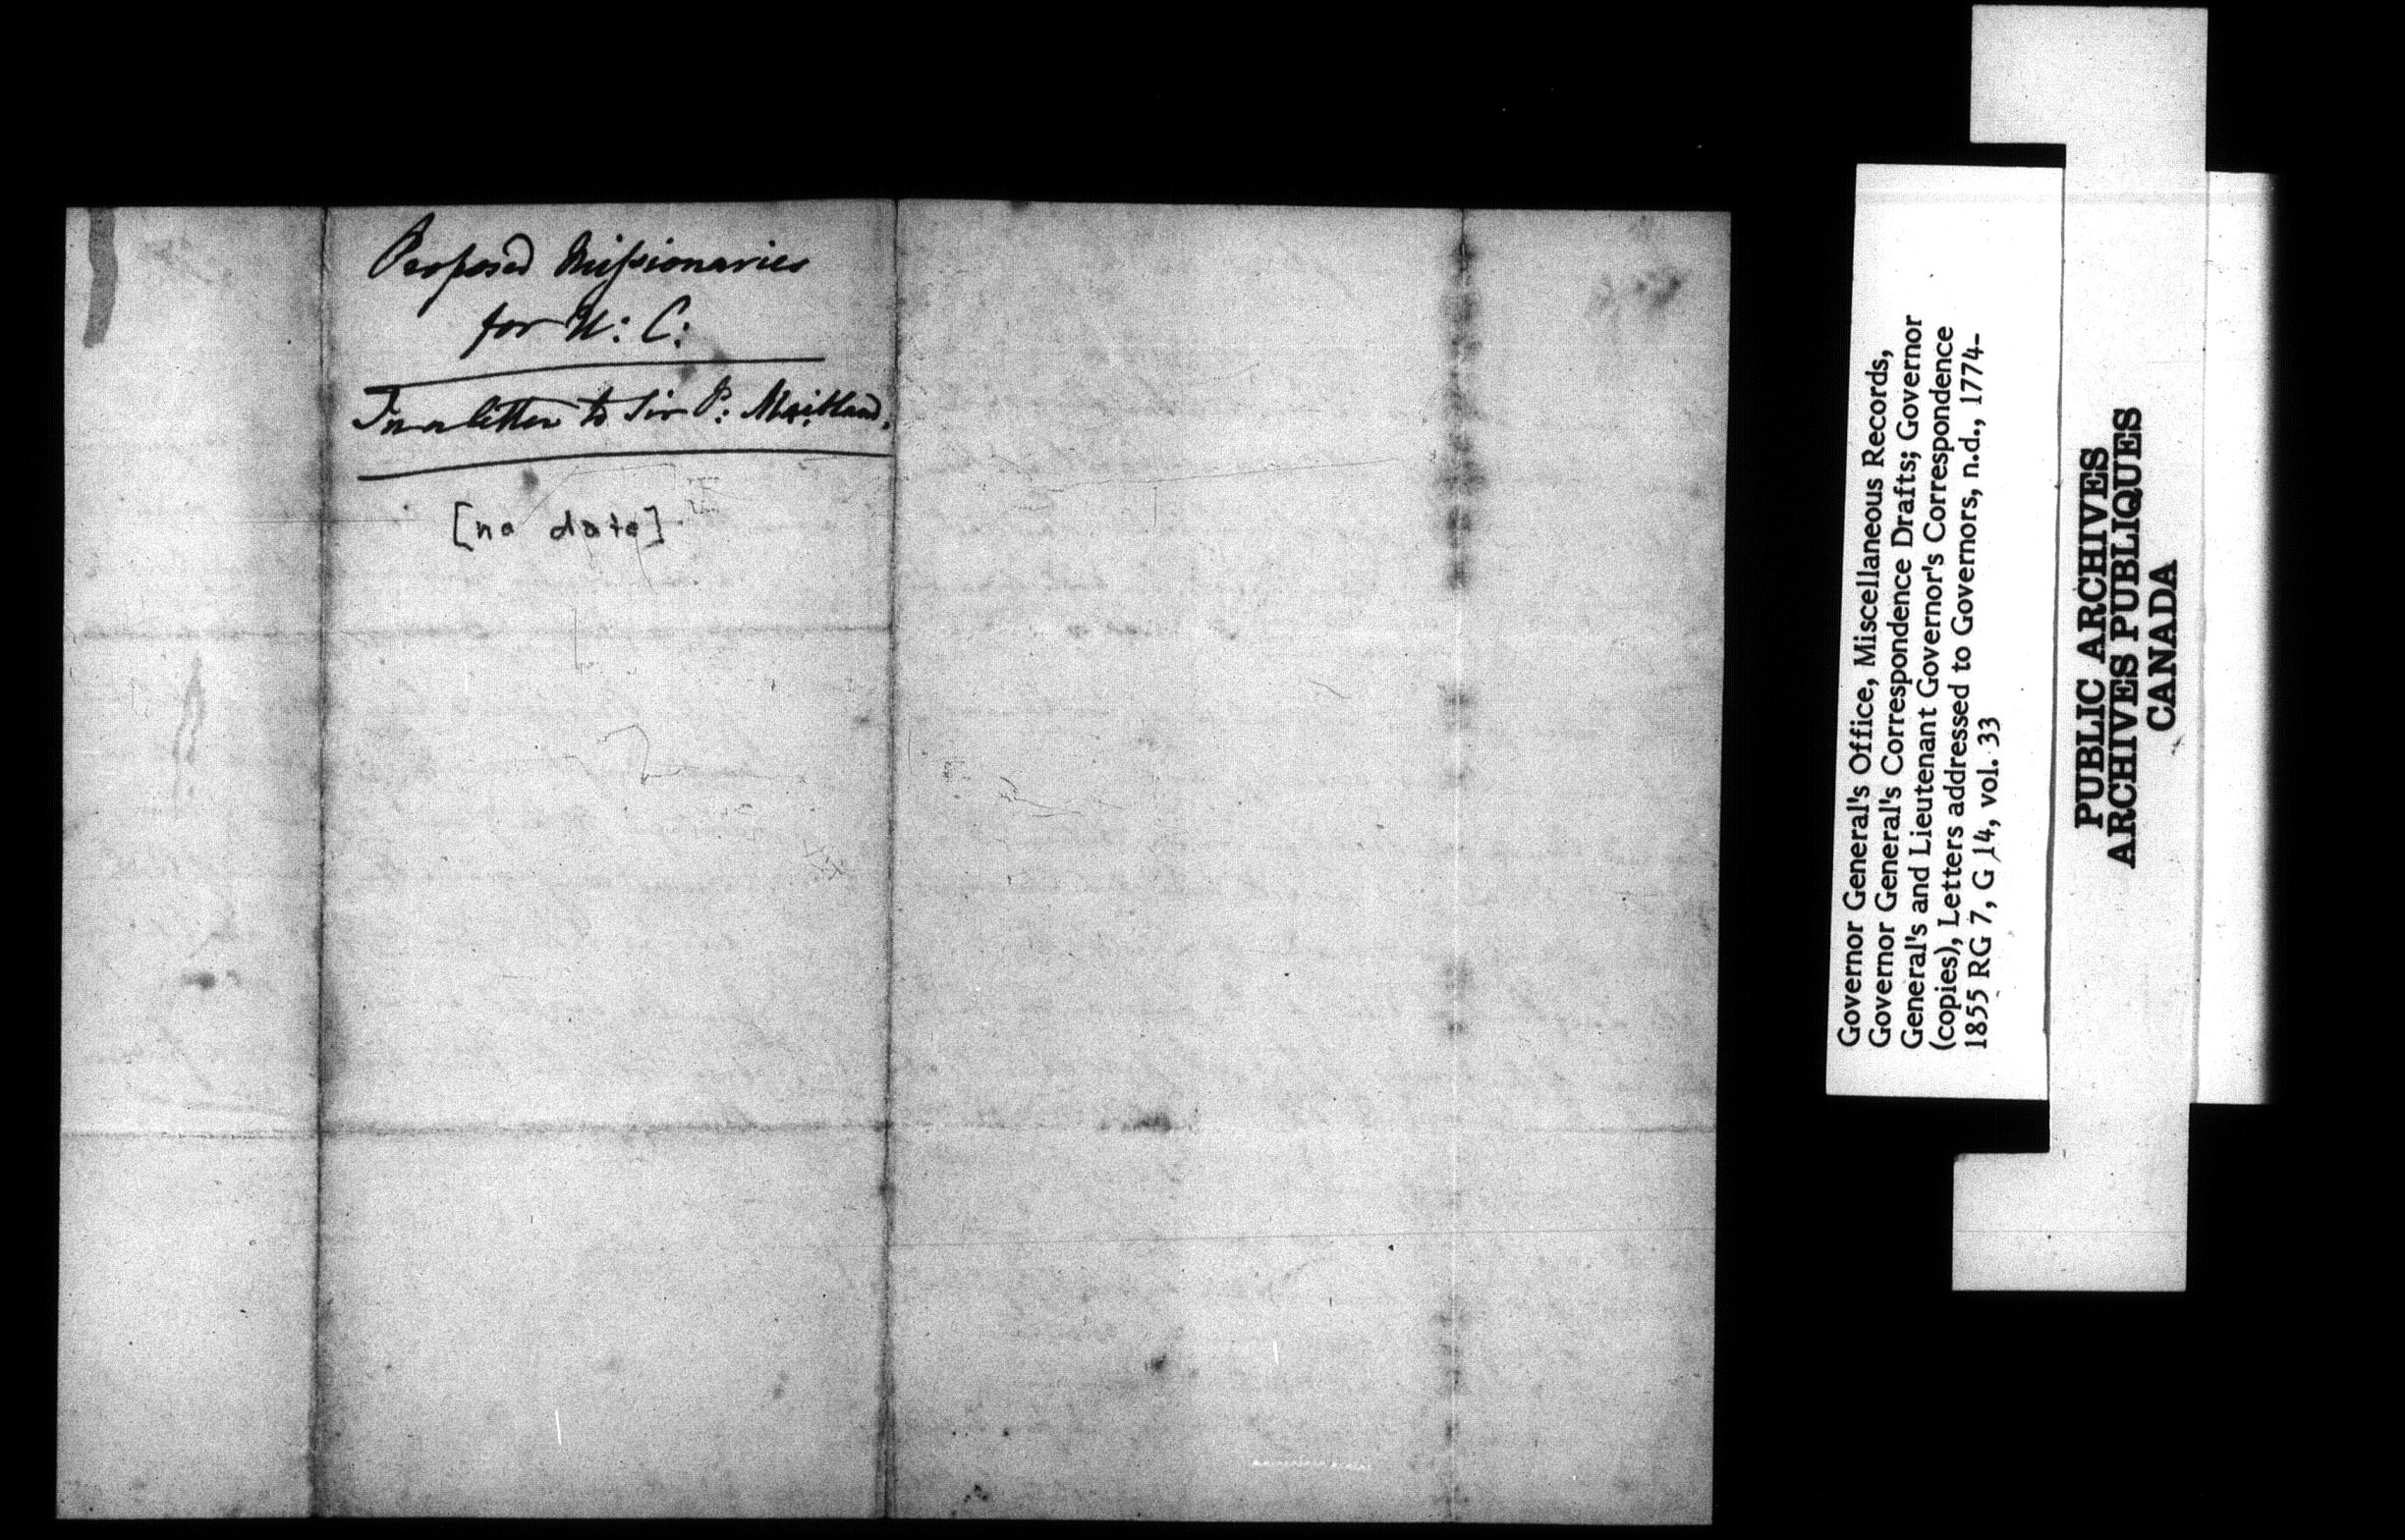 Proposed Missionaries
for U: C:
In a letter to Sir P: Maitland.
[no date]
Governor General's Office, Miscellaneous Records,
Governor General's Correspondence Drafts; Governor
General's and Lieutenant Governor's Correspondence
(copies), Letters addressed to Governors, n.d., 1774-
1855 RG 7, G 14, vol. 33
PUBLIC ARCHIVES
ARCHIVES PUBLIQUES
CANADA